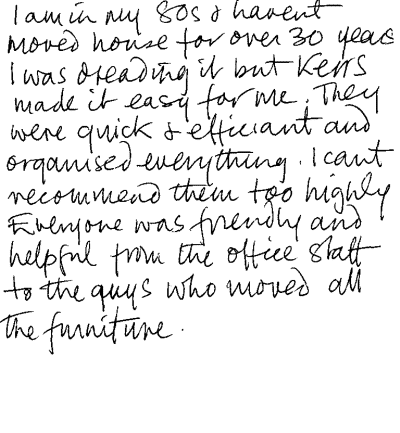 I am in my 80s & havent
moved house for over 30 years
I was dreading it but Kerrs
made it easy for me. They
were quick & efficiant and
organised everything. I cant
recommend them too highly
Everyone was friendly and
helpful from the office staff
to the guys who moved all
the furniture.